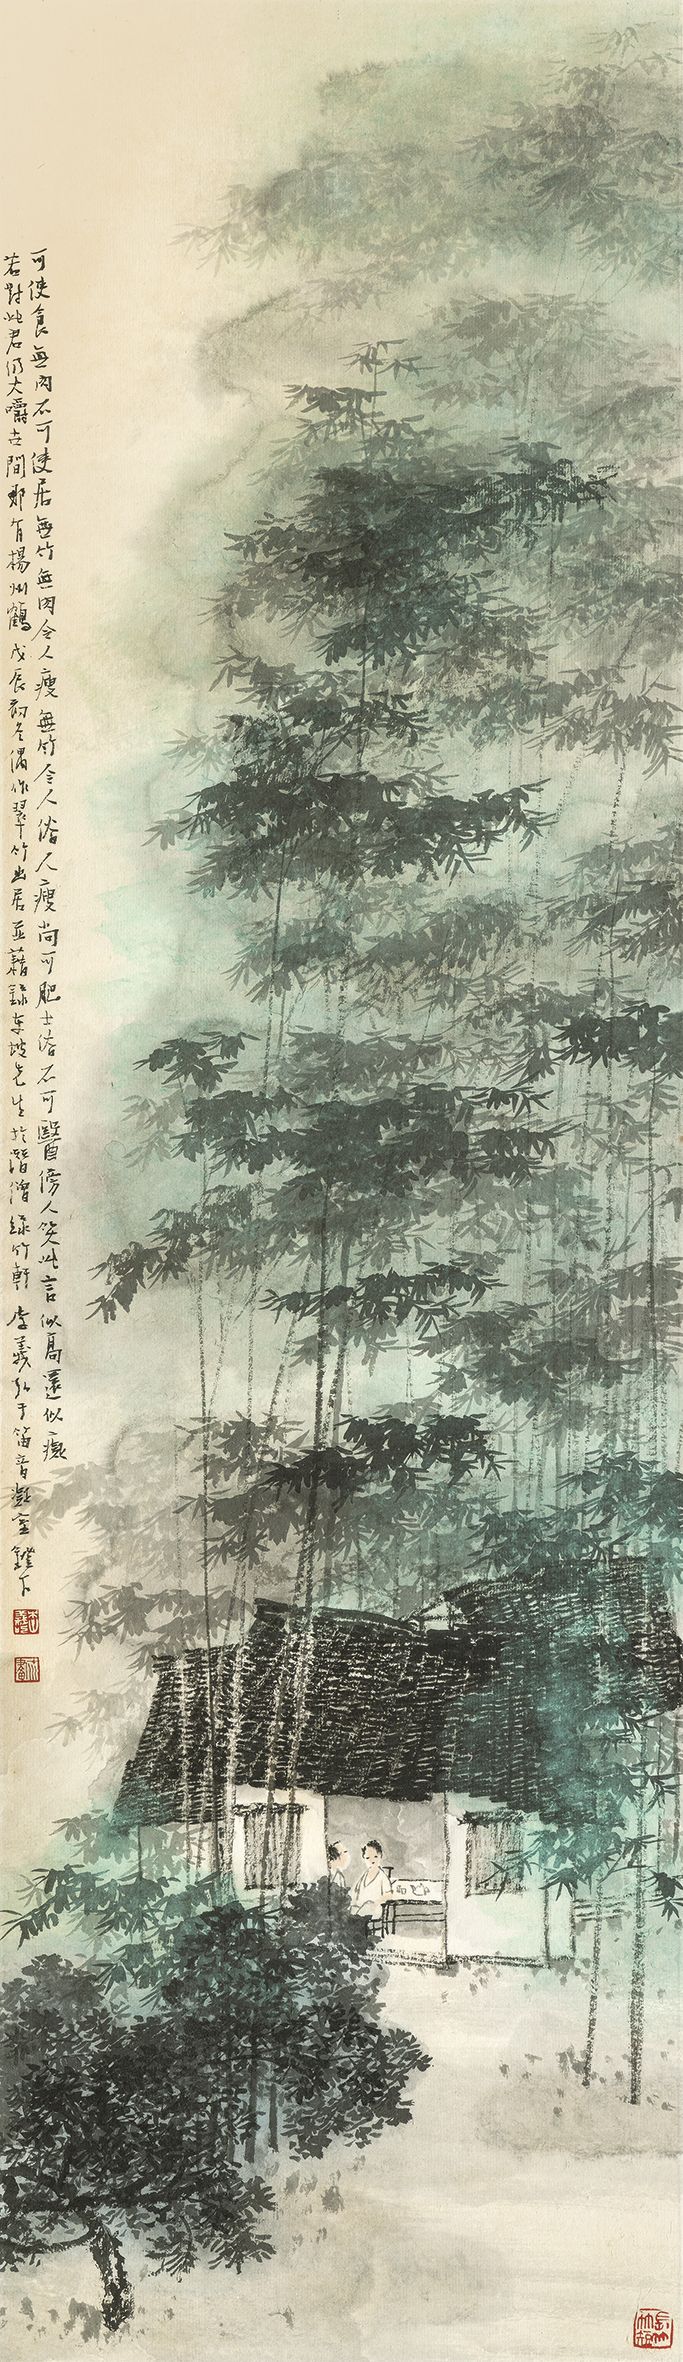 可使食無肉不可使居無竹無肉令人瘦無竹令人俗人瘦尚可肥士俗不可醫傍人笑此言似高還似癡
若對此君仍大嚼世間那有揚州鶴戊辰初冬偶作翠竹幽居並藉錄東坡先生於潛僧綠竹軒李義弘于笛音凝室鐙下